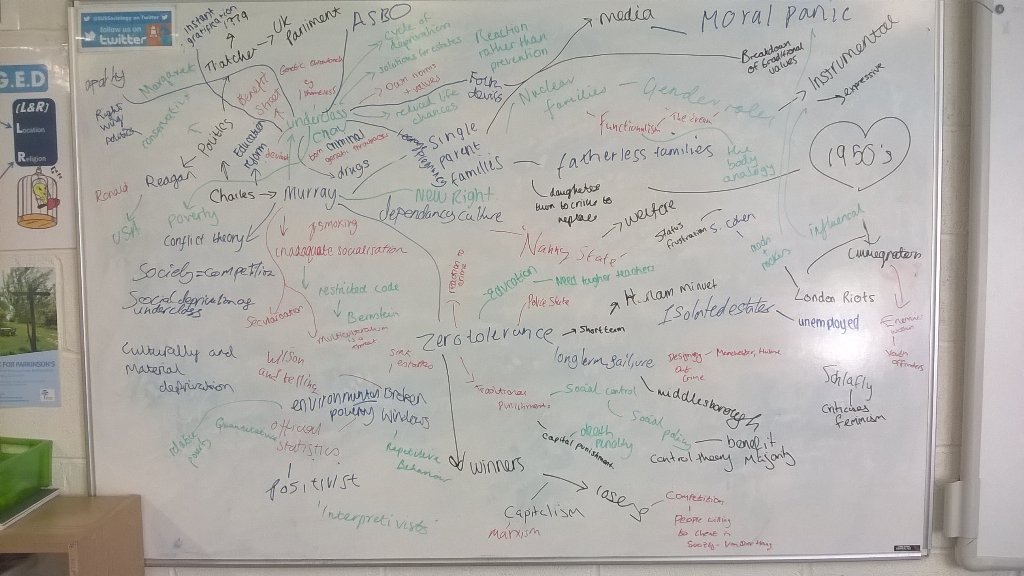 @SirSociology on Twitter
follow us on
twitter
instant
gratification
1979
UK
Parliment
ASBO
cycle of
deprivation
solutions for estates
Reaction
rather than
prevention
media
MORAL PANIC
Breakdown
of traditional
values
Instrumental
expressive
apathy
Right
wing
policies
Margaret
Thatcher
conservative
Benefit
Street
Own norms
+ values
reduced life
chances
Folk
devils
Nuclear
families
Gender roles
Functionalism
the dream
G.E.D
(L&R)
Location
Religion
Politics
Education
reform
underclass
/ CHAV
deviant
born
criminal
drugs
teenage
pregnancy
Single
parent
families
fatherless families
the
body
analogy
1950's
Ronald
Reagan
USA
Charles
Murray
poverty
Conflict theory
New Right
dependancy culture
daughters
turn to crime to
replace
smoking
inadaquate socialisation
Nanny State
welfare
Status
frustration
S. Cohen
mods
+
rockers
influencal
immegration
Society = competition
Social deprivation of
underclass
restricted code
Bernstein
Secularisation
multiculturalism
is a
threat
reaction to
crime
education
Need tougher teachers
Police State
H. slam minuet
Isolated estates
London Riots
unemployed
Zero tolerance
Short term
long term failure
Designing
Out
Crime
Manchester, Hulme
Youth offenders
Culturally and
Material
deprivation
Wilson
and telling
environmental
poverty
Broken
Windows
Traditional
punishments
Social control
middlesborough
Schlafly
critices
feminism
relative
poverty
Quantitative
official
statistics
Repetetive
Behaviour
capital punishment
death
penalty
Social policy
Control theory
benefit
Majority
positivist
'Interpretivists'
winners
losers
Capitalism
marxism
Competition
People willing
to cheat in
Society - Van Den Haag
FOR PARKINSON'S